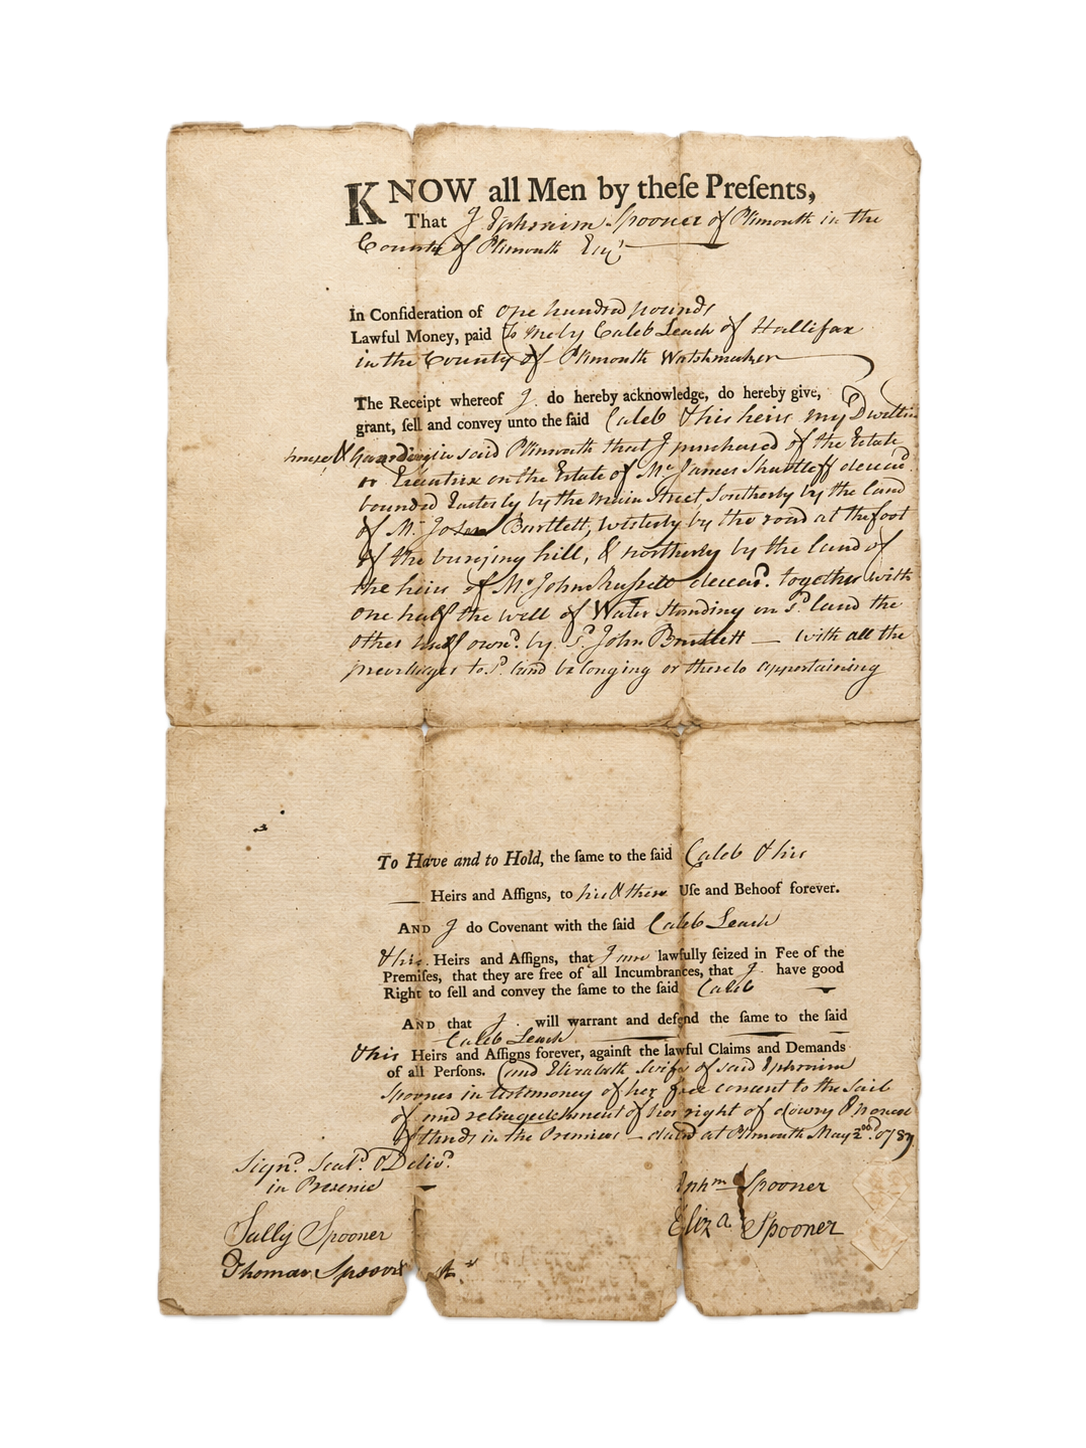 KNOW all Men by theſe Preſents,
That I Ephraim Spooner of Plimouth in the
County of Plimouth Esqr
In Conſideration of one hundred pounds
Lawful Money, paid to me by Caleb Leach of Hallifax
in the County of Plimouth Watchmaker
The Receipt whereof I do hereby acknowledge, do hereby give,
grant, ſell and convey unto the ſaid Caleb & his heirs my Dwelling
house & Gaarding in said Plimouth that I purchased of the Estate
or Executrix on the Estate of Mr James Shurtleff deceasd
bounded Easterly by the main Street, Southerly by the land
of Mr Bartlett, westerly by the road at the foot
of the burying hill, & northerly by the land of
the heirs of Mr John Russell deceasd. together with
one half the well of Water Standing on sd land the
other half ownd. by sd John Bartlett — with all the
previlages to sd land belonging or thereto appertaining
To Have and to Hold, the ſame to the ſaid Caleb & his
Heirs and Aſſigns, to his & their Uſe and Behoof forever.
AND I do Covenant with the ſaid Caleb Leach
& his Heirs and Aſſigns, that I am lawfully ſeized in Fee of the
Premiſes, that they are free of all Incumbrances, that I have good
Right to ſell and convey the ſame to the ſaid Caleb
AND that I will warrant and defend the ſame to the ſaid
Caleb Leach
& his Heirs and Aſſigns forever, againſt the lawful Claims and Demands
of all Perſons. and Elizabeth wife of said Ephraim
Spooner in testomoney of her free consent to the sail
of and relinquishment of her right of dowry &
of thirds in the Premises — dated at Plimouth May 2nd. 1787
Signd. Seald. & Delivd.
in Presence
Ephm Spooner
Sally Spooner
Eliza Spooner
Thomas Spooner